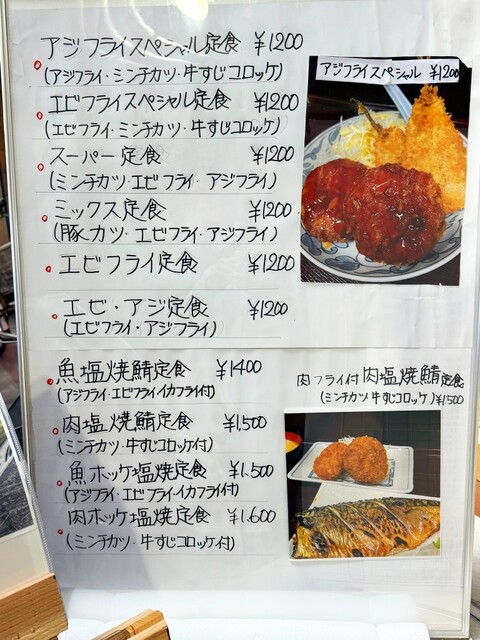 アジフライスペシャル定食 ¥1200
(アジフライ・ミンチカツ・牛すじコロッケ)
エビフライスペシャル定食 ¥1200
(エビフライ・ミンチカツ・牛すじコロッケ)
スーパー定食 ¥1200
(ミンチカツ・エビフライ・アジフライ)
ミックス定食 ¥1200
(豚ヘカツ・エビフライ・アジフライ)
エビフライ定食 ¥1200
エビ・アジ定食 ¥1200
(エビフライ・アジフライ)
アジフライスペシャル ¥1200
魚塩焼鯖定食 ¥1400
(アジフライ・エビフライイカフライ付)
肉塩焼鯖定食 ¥1,500
(ミンチカツ・牛すじコロッケ付)
魚ホッケ塩焼定食 ¥1.500
(アジフライ・エビフライイカフライ付)
肉ホッケ塩焼定食 ¥1.600
(ミンチカツ・牛すじコロッケ付)
肉フライ付肉塩焼鯖定食
(ミンチカツ牛すじコロッケ)¥1500